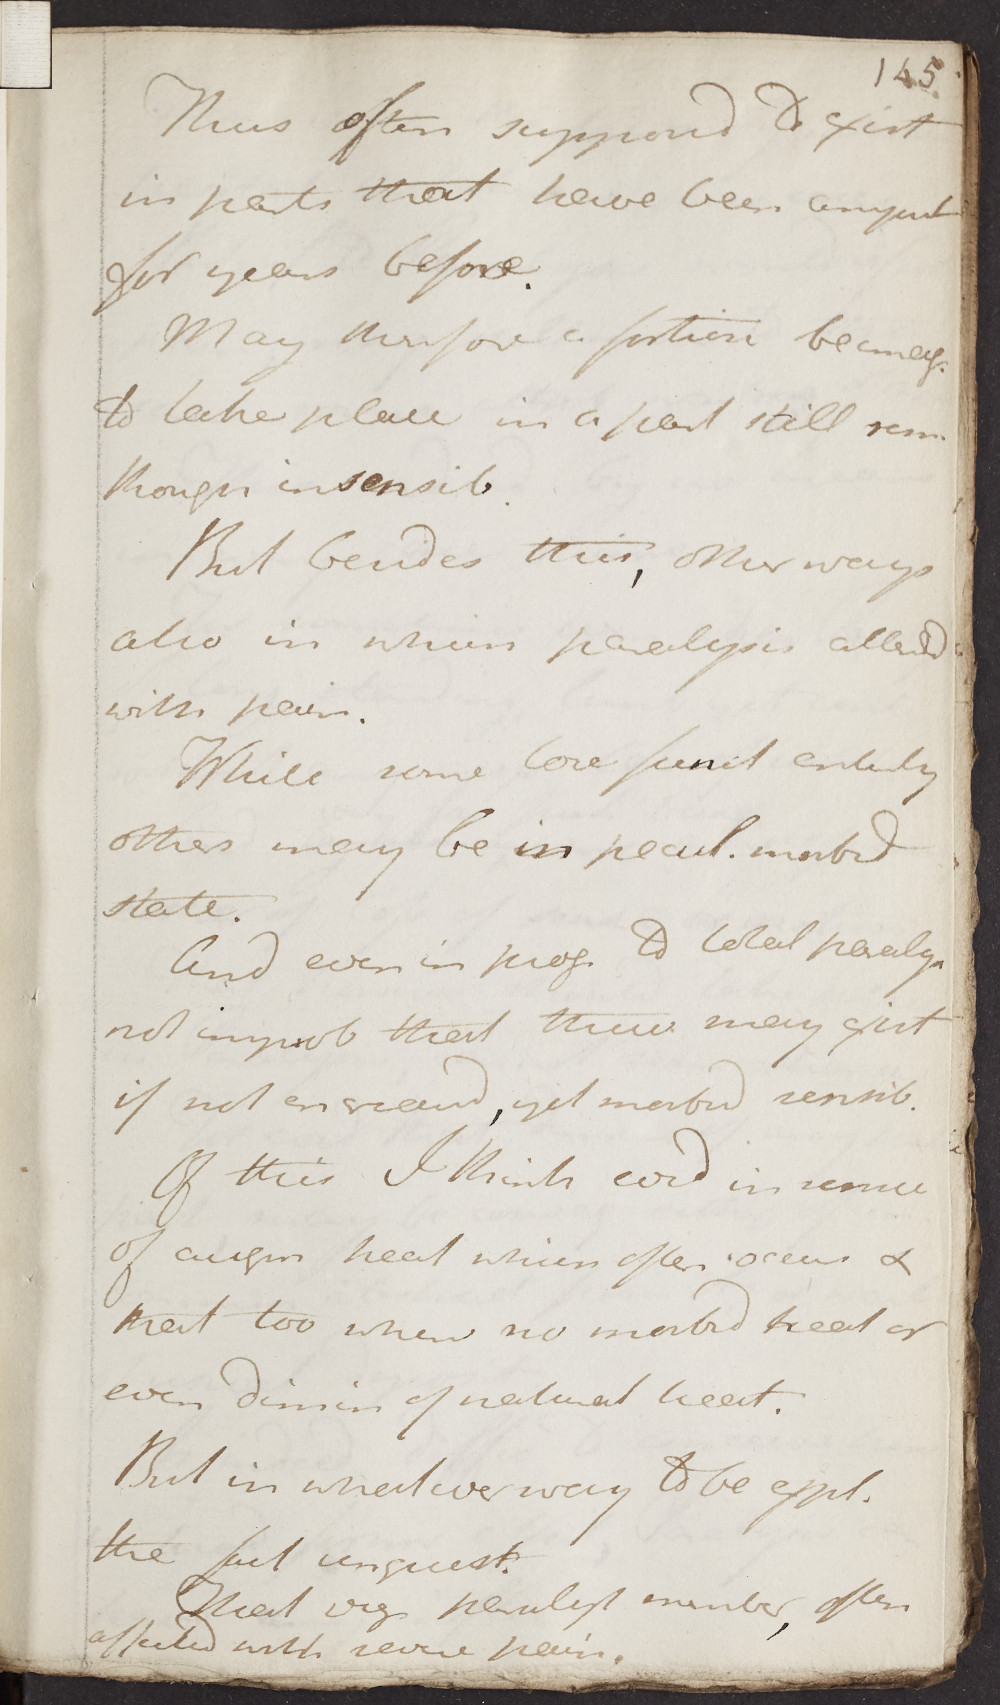 145
Thus often supposed to exist
in parts that have been amput
for years before.
May therefore a fortiori be imag.
to take place in a part still rem.
though insensib.
But besides this, other ways
also in which paralysis attend
with pain.
While some lose funct entirely
others may be in pecul. morbid
state.
And even in prog. to total paraly.
not improb that there may exist
if not increased, yet morbid sensib.
Of this I think evid in sense
of augm heat which often occurs &
that too when no morbid heat or
even dimin of natural heat.
But in whatever way to be expl.
the fact unquest.
That paralyt member, often
affected with severe pain.